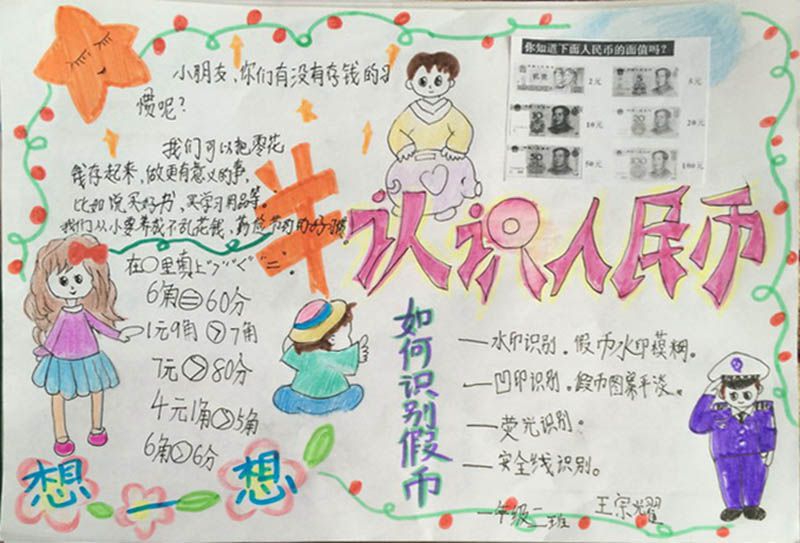 小朋友，你们有没有存钱的习
惯呢？
我们可以把零花
钱存起来，做更有意义的事。
比如说买好书，买学习用品等。
我们从小要养成不乱花钱，勤俭节约的好习惯
你知道下面人民币的面值吗？
2元
5元
10元
20元
50元
100元
￥
认识人民币
在○里填上">""<""="
6角=60分
1元9角>7角
7元>80分
4元1角>5角
6角>6分
想一想
如何识别假币
—水印识别。假币水印模糊。
—凹印识别。假币图案平淡。
—荧光识别。
—安全线识别。
一年级二班 王宗耀